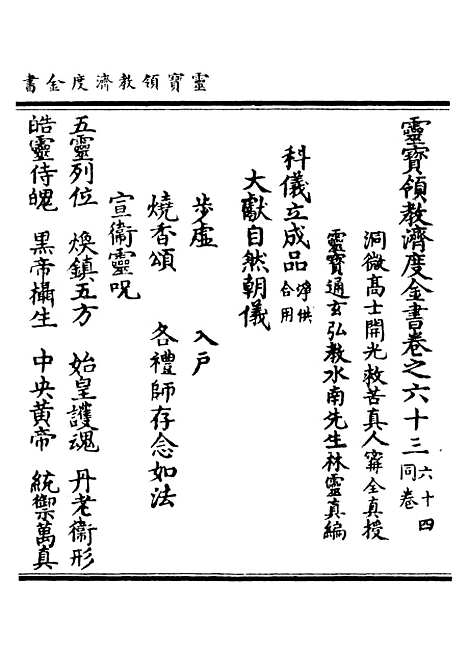 靈寶領教濟度金書
靈寶領教濟度金書卷之六十三 六十四同卷
洞微高士開光救苦真人甯全真授
靈寶通玄弘教水南先生林靈真編
科儀立成品 淨供合用
大獻自然朝儀
步虛 入戶
燒香頌 各禮師存念如法
宣衛靈呪
五靈列位 煥鎮五方 始皇護魂 丹老衞形
皓靈侍魄 黑帝攝生 中央黃帝 統禦萬真